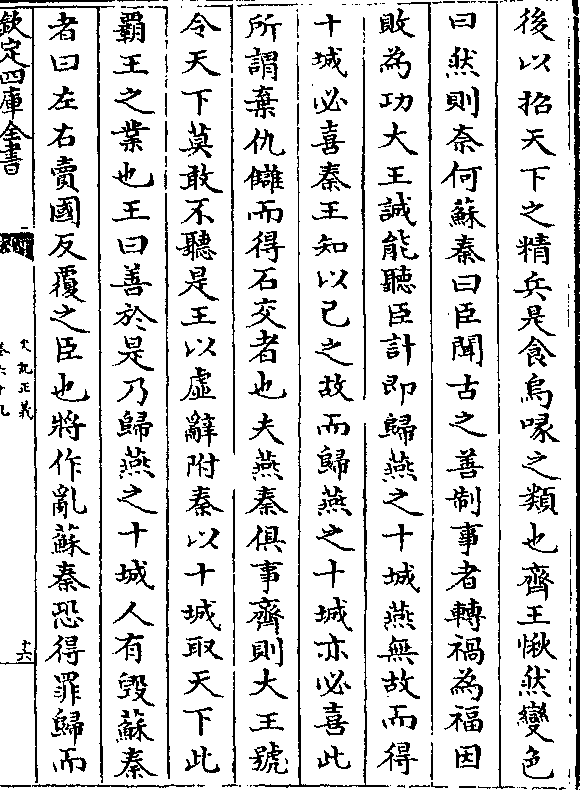 後以招天下之精兵是食烏喙之類也齊王愀然變色
曰然則奈何蘇秦曰臣聞古之善制事者轉禍為福因
敗為功大王誠能聽臣計即歸燕之十城燕無故而得
十城必喜秦王知以己之故而歸燕之十城亦必喜此
所謂棄仇讎而得石交者也夫燕秦俱事齊則大王號
令天下莫敢不聽是王以虛辭附秦以十城取天下此
霸王之業也王曰善於是乃歸燕之十城人有毀蘇秦
者曰左右賣國反覆之臣也將作亂蘇秦恐得罪歸而
欽定四庫全書
史記正義
卷六十九
十六